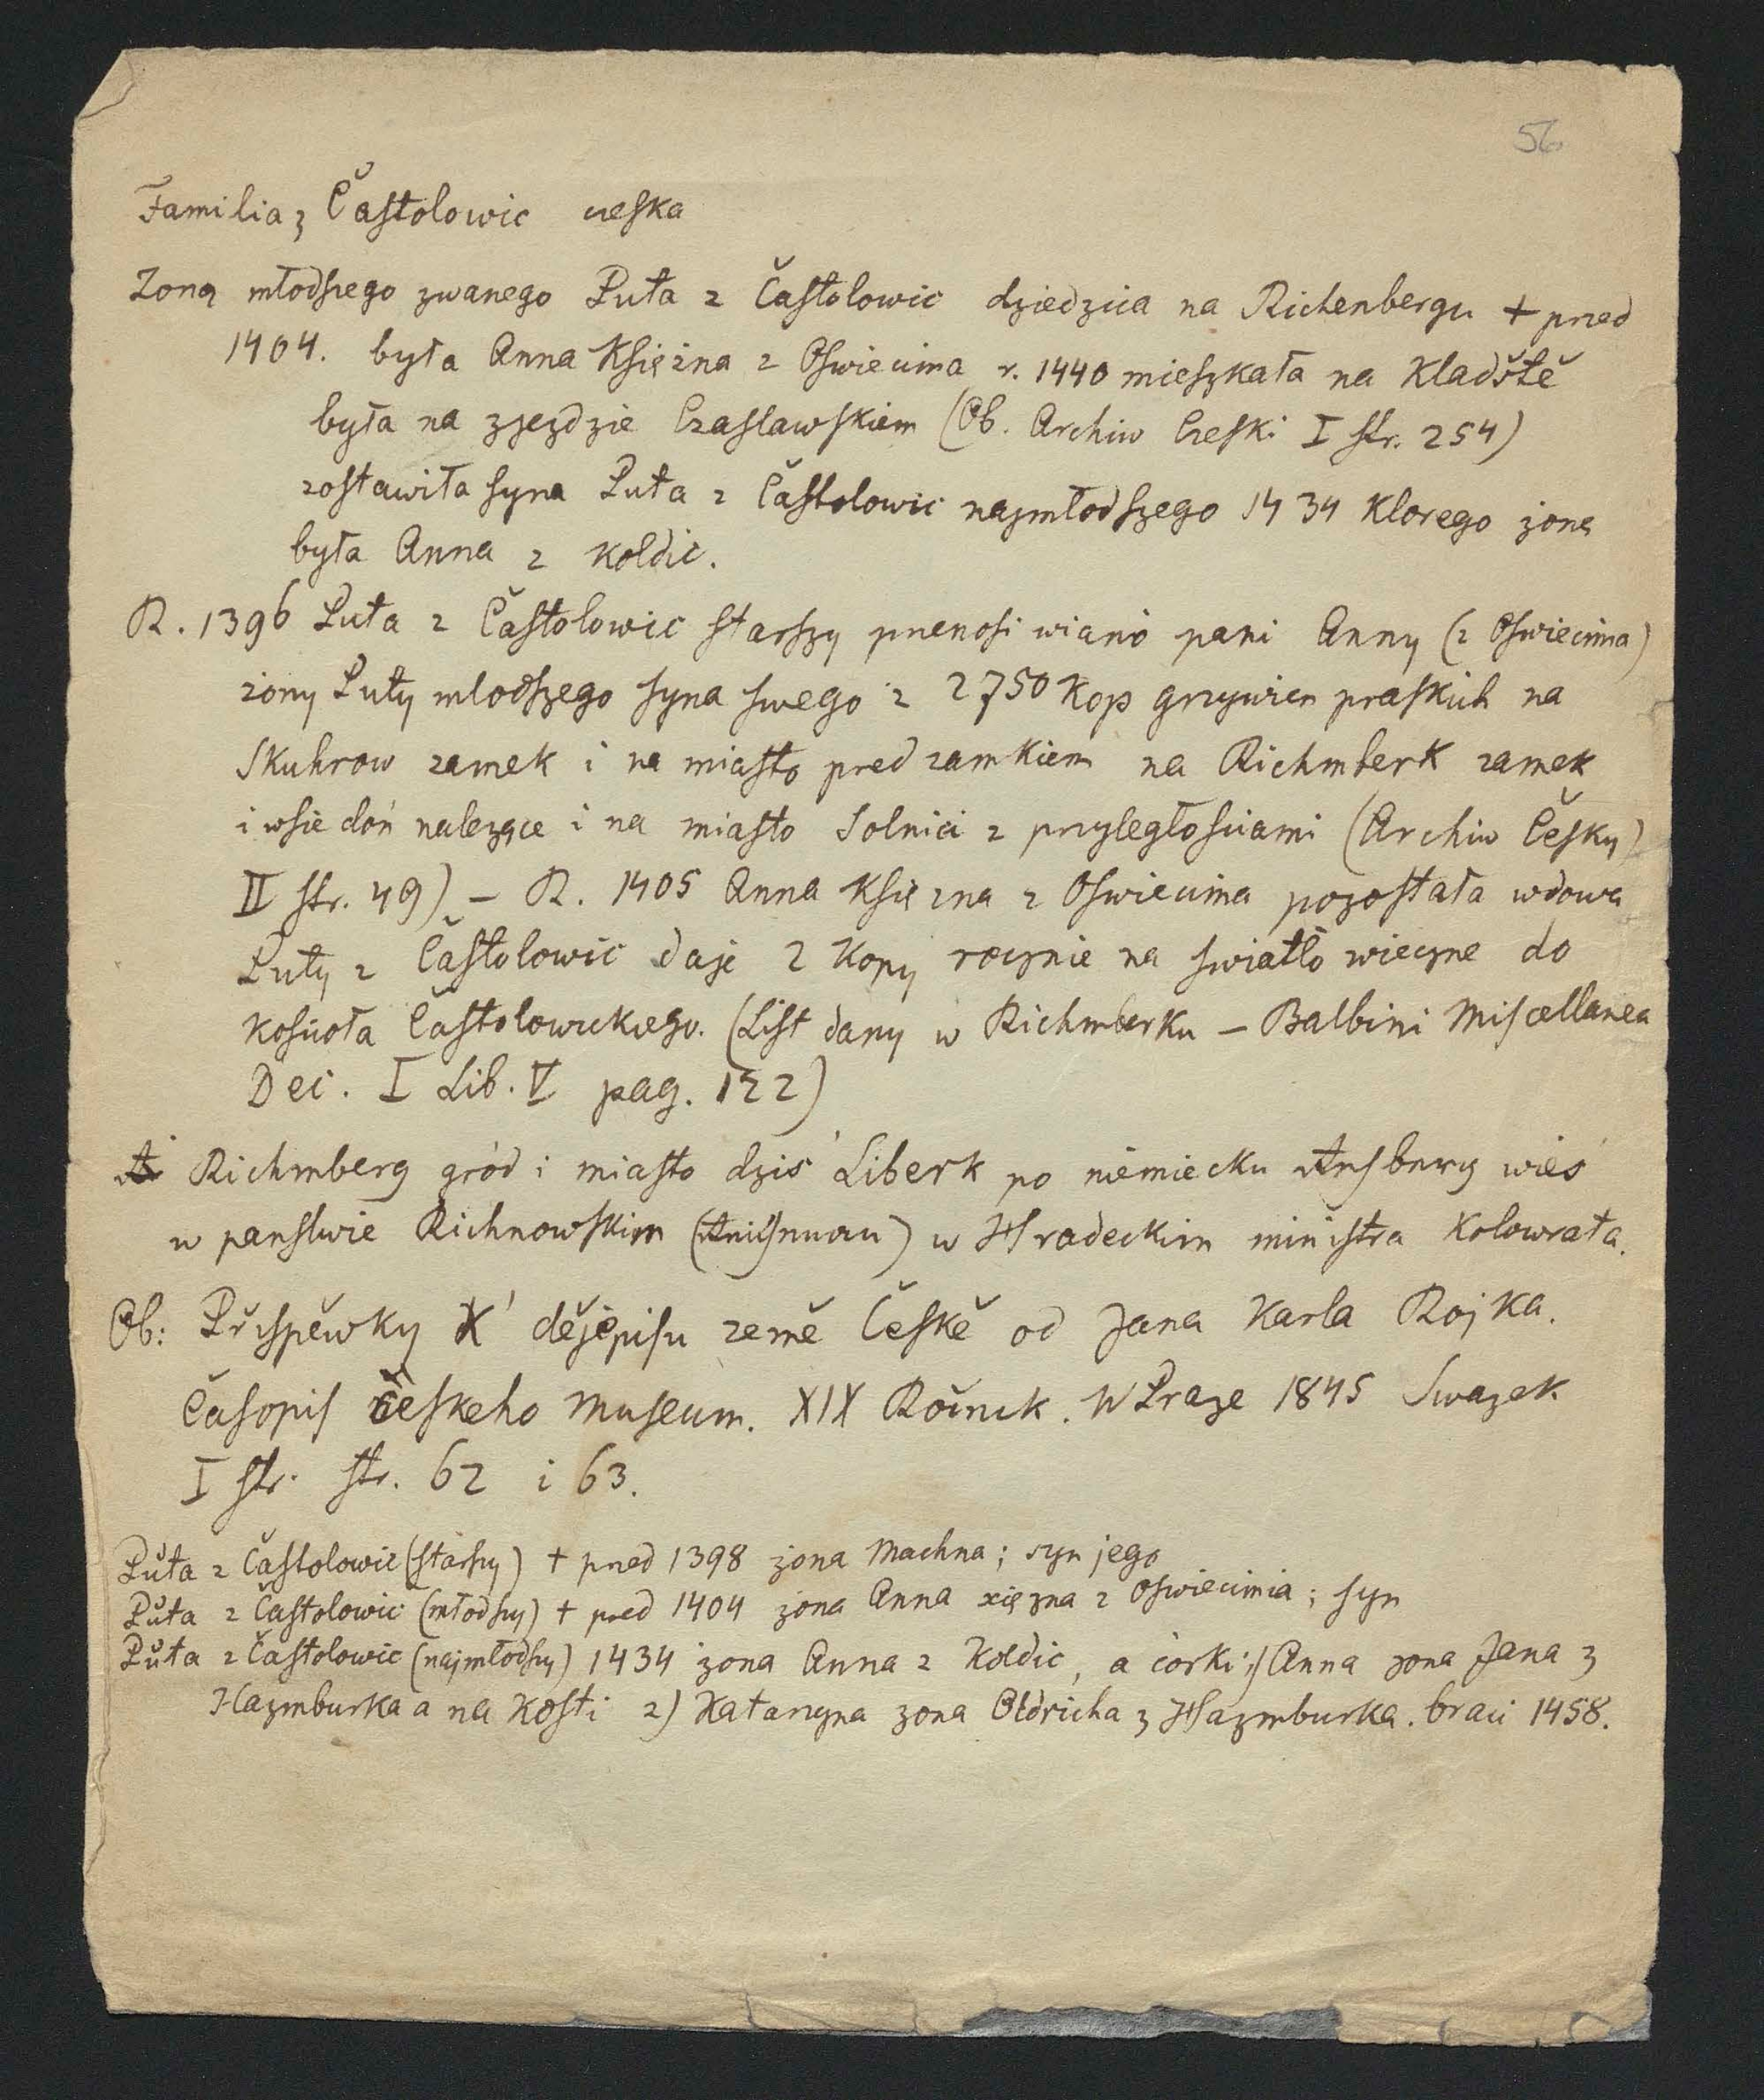 56
Familia z Častolowic czeska
Zoną młodszego zwanego Puta z Častolowic dziedzica na Richenbergu + przed
1404. była Anna Księżna z Oswiecima r. 1440 mieszkała na Kladště
była na zjezdzie Czaslawskiem (Ob. Archiw Czeski I str. 254)
zostawiła syna Puta z Častolowic najmłodszego 1434 Ktorego żoną
była Anna z Koldic.
R. 1396 Puta z Častolowic starszy przenosi wiano pani Anny (z Oswiecima)
żony Puty mlodszego syna swego z 2750 Kop grzywien praskich na
Skuhrow zamek i na miasto pred zamkiem na Richmberk zamek
i wsie doń nalezące i na miasto Solnici z przyległosciami (Archiw Česky)
II str. 49) – R. 1405 Anna Księzna z Oswiecima pozostała wdowa
Puty z Častolowic daje 2 Kopy rocznie na swiatło wieczne do
Kosciola Častolowickiego. (List dany w Richmberku – Balbini Miscellanea
Dec. I Lib. V pag. 122)
Richmberg gród i miasto dziś Liberk po niemiecku wieś
w panstwie Richnowskim w Hradeckim ministra Kolowrata.
Ob: Přispěwky K dějepisu země České od Jana Karla Rojka.
Časopis českeho Museum. XIX Ročnik. W Praze 1845 Swazek
I str. str. 62 i 63.
Půta z Častolowic (starszy) + pred 1398 zona Machna; syn jego
Půta z Častolowic (młodszy) + pred 1404 zona Anna xięzna z Oswiecimia; syn
Půta z Častolowic (najmłodszy) 1434 zona Anna z Koldic, a córki: 1) Anna zona Jana z
Hazmburka a na Kosti 2) Katarzyna zona Oldricha z Hazmburka. braci 1458.